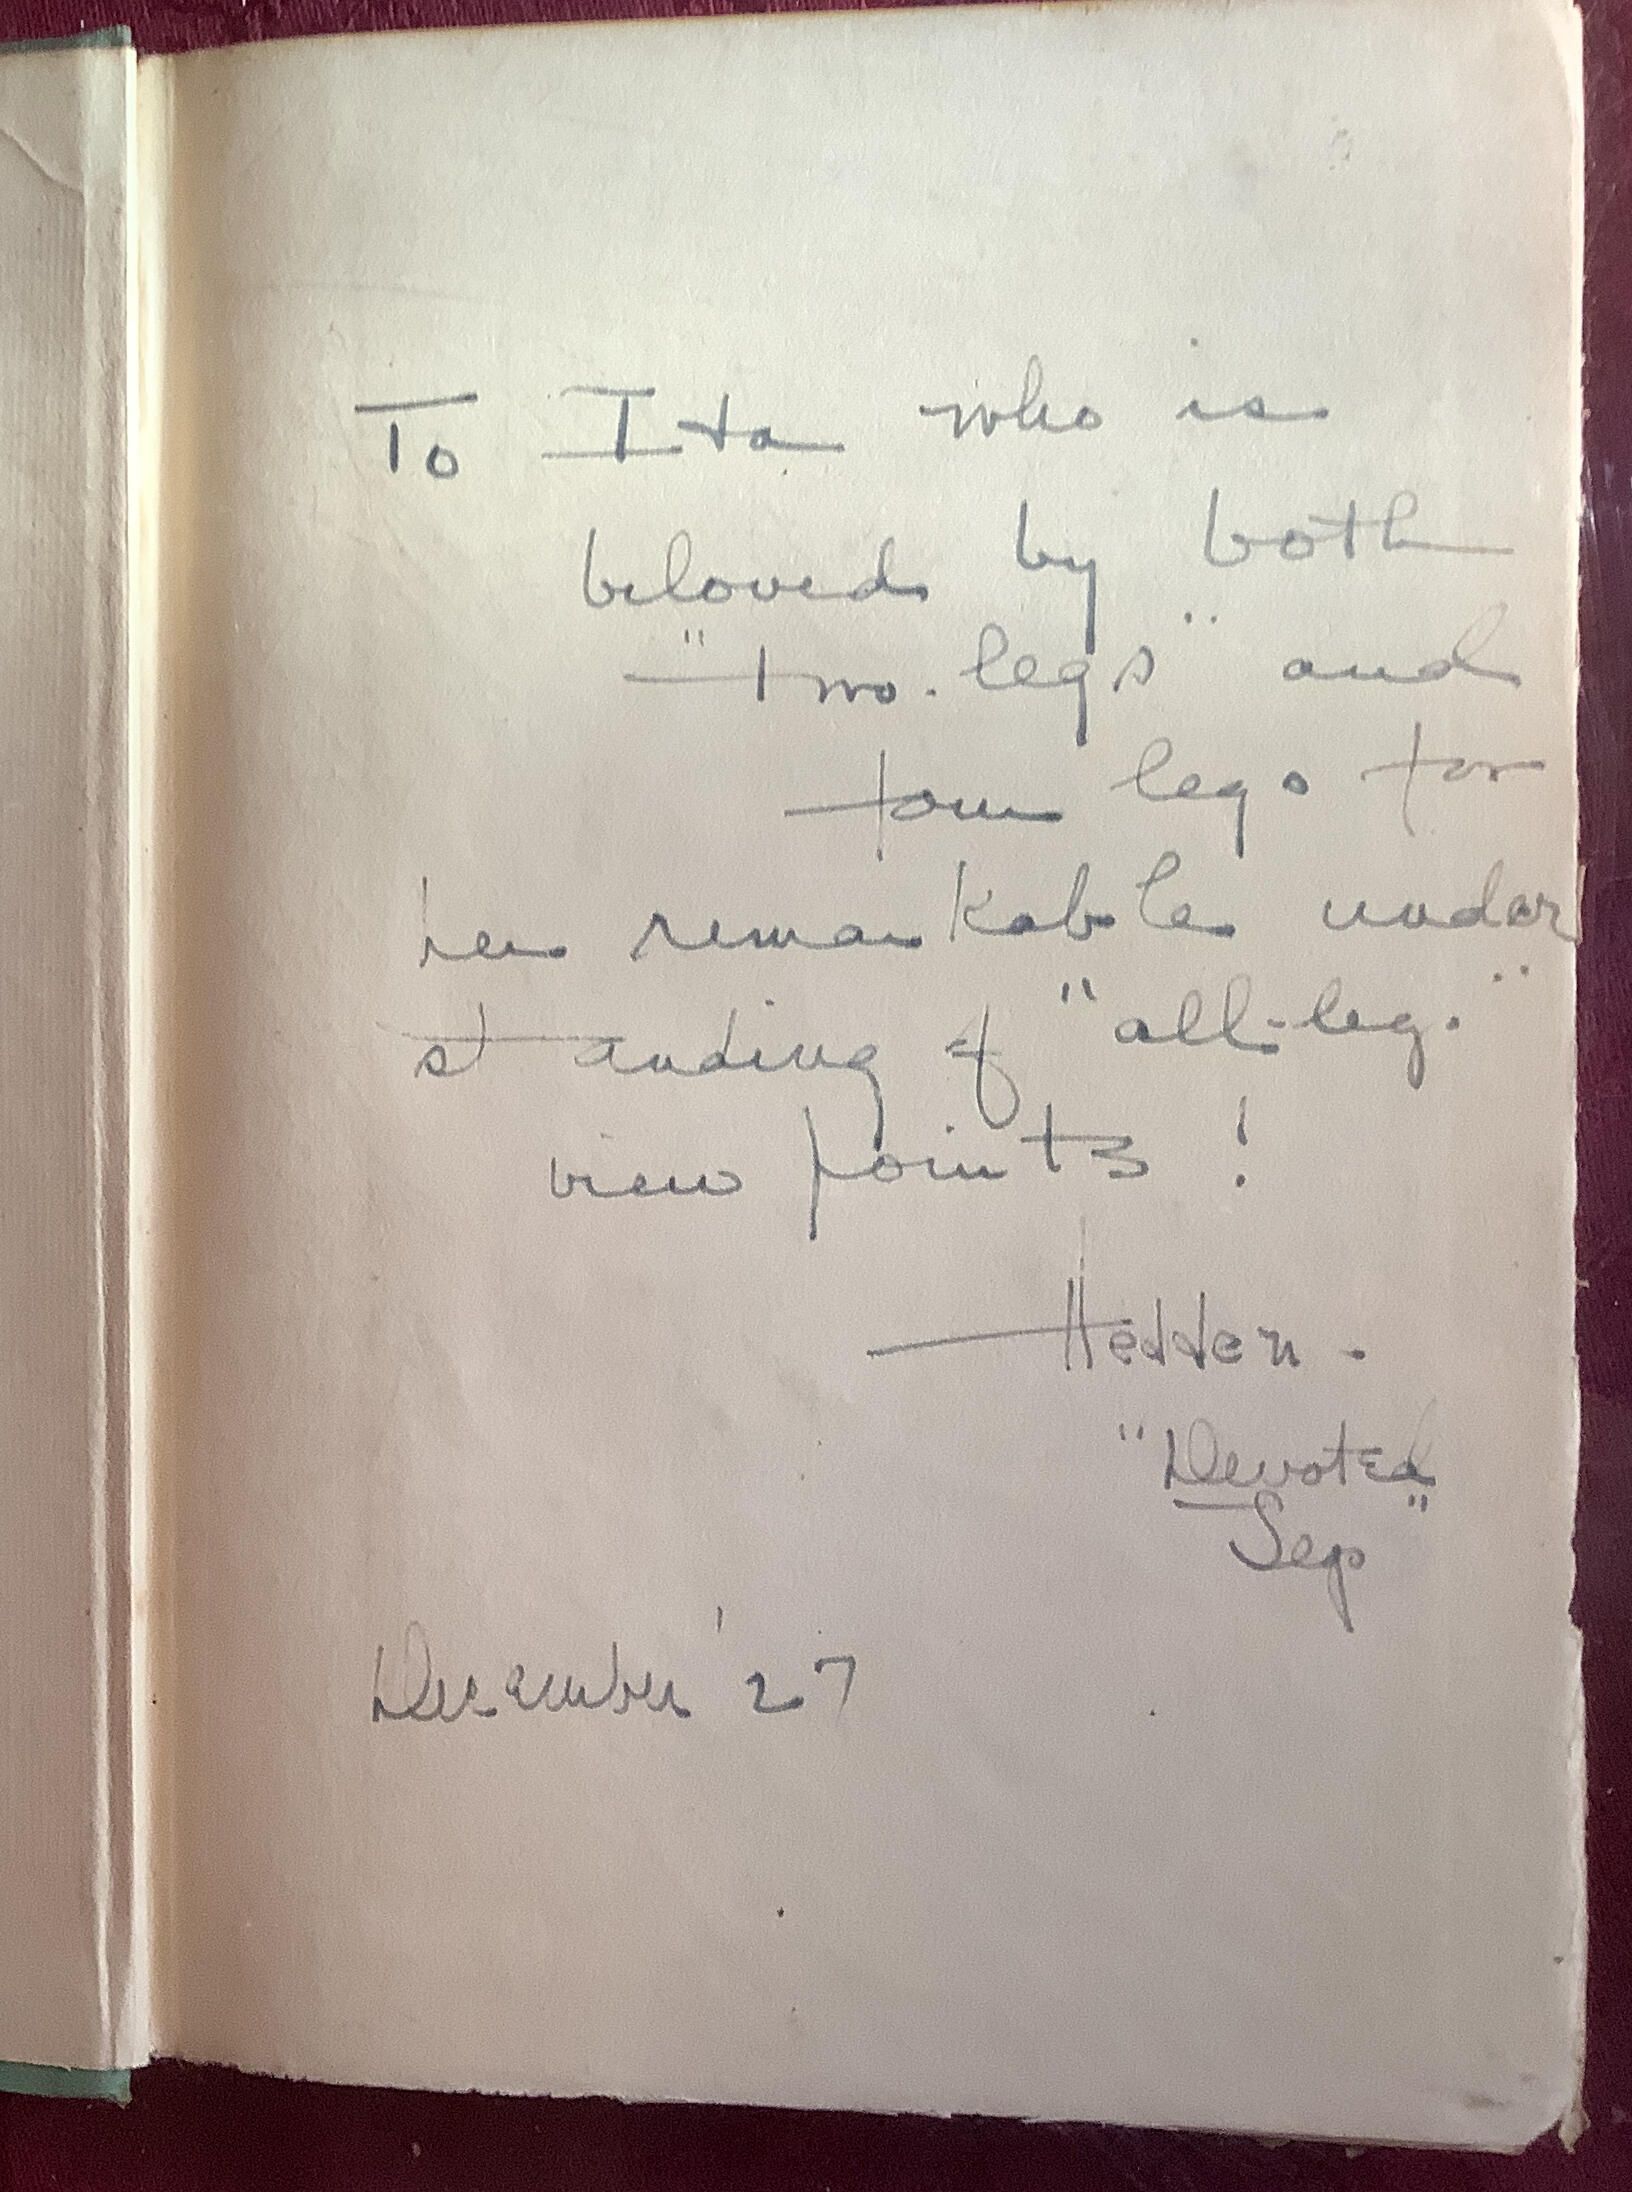 To Ita who is
beloved by both
"two-legs" and
four legs for
her remarkable under
standing of "all-leg."
view points!
Hedden -
"Devoted
Sep"
December '27